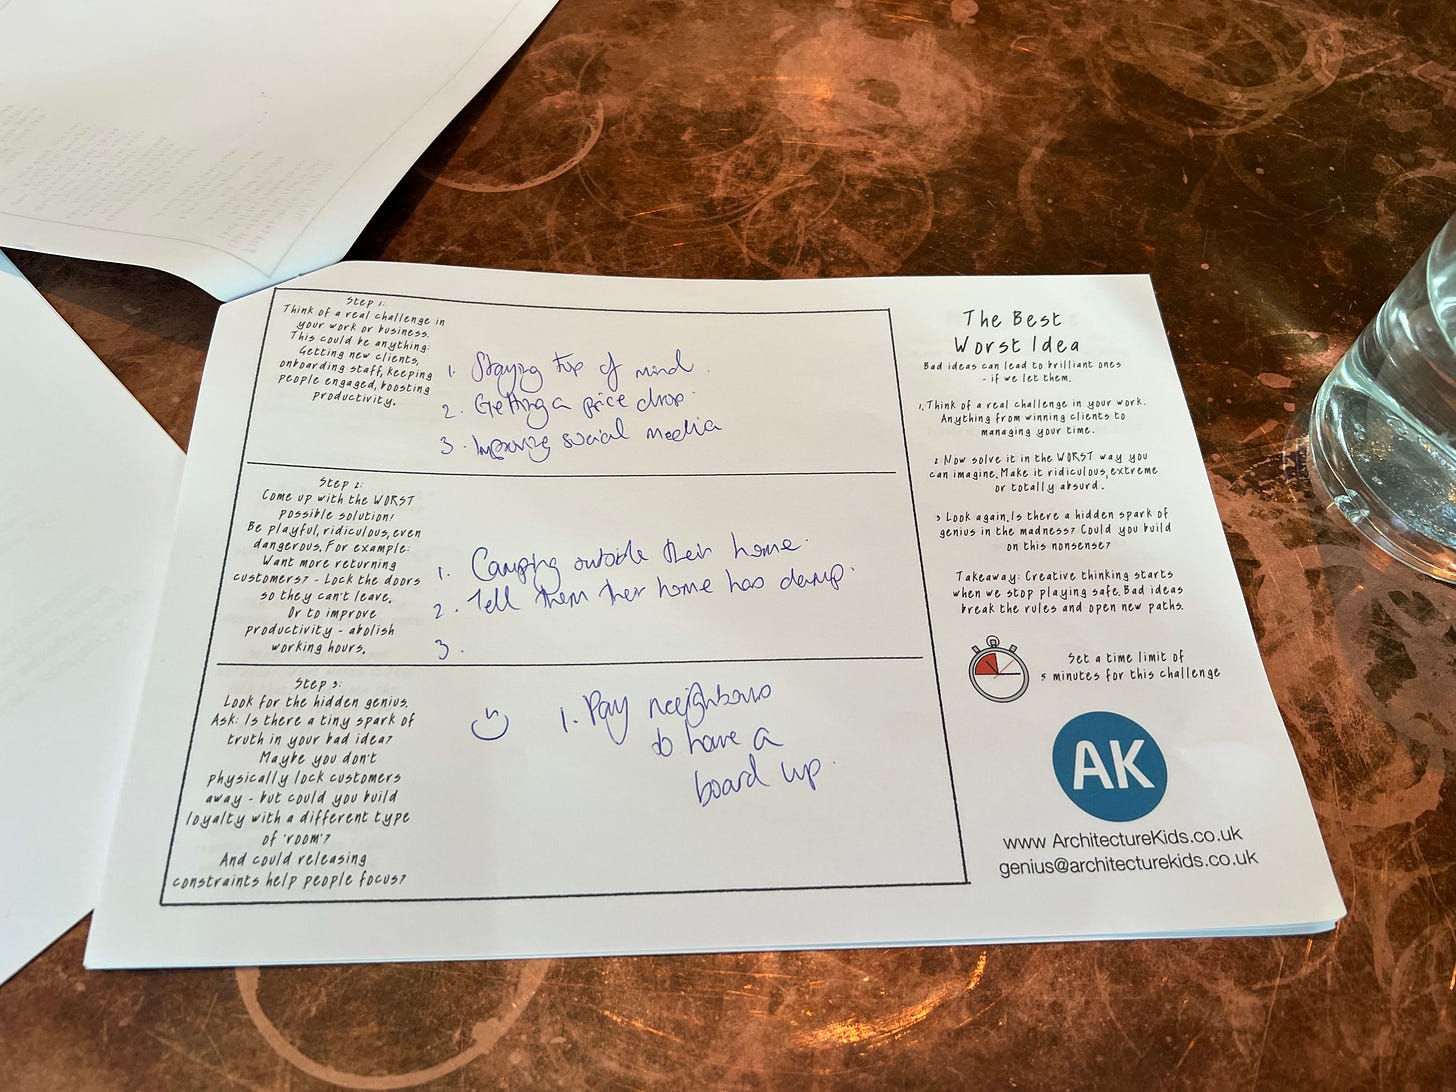 Step 1:
Think of a real challenge in
your work or business.
This could be anything:
Getting new clients,
onboarding staff, keeping
people engaged, boosting
productivity.
1. Staying top of mind.
2. Getting a price drop.
3. Improving social media
Step 2:
Come up with the WORST
possible solution!
Be playful, ridiculous, even
dangerous. For example:
Want more returning
customers? - Lock the doors
so they can't leave.
Or to improve
productivity - abolish
working hours.
1. Camping outside their home.
2. Tell them their home has damp.
3.
Step 3:
Look for the hidden genius.
Ask: Is there a tiny spark of
truth in your bad idea?
Maybe you don't
physically lock customers
away - but could you build
loyalty with a different type
of 'room'?
And could releasing
constraints help people focus?
1. Pay neighbours
to have a
board up.
The Best
Worst Idea
Bad ideas can lead to brilliant ones
- if we let them.
1. Think of a real challenge in your work.
Anything from winning clients to
managing your time.
2 Now solve it in the WORST way you
can imagine. Make it ridiculous, extreme
or totally absurd.
3 Look again. Is there a hidden spark of
genius in the madness? Could you build
on this nonsense?
Takeaway: Creative thinking starts
when we stop playing safe. Bad ideas
break the rules and open new paths.
Set a time limit of
5 minutes for this challenge
AK
www.ArchitectureKids.co.uk
genius@architecturekids.co.uk